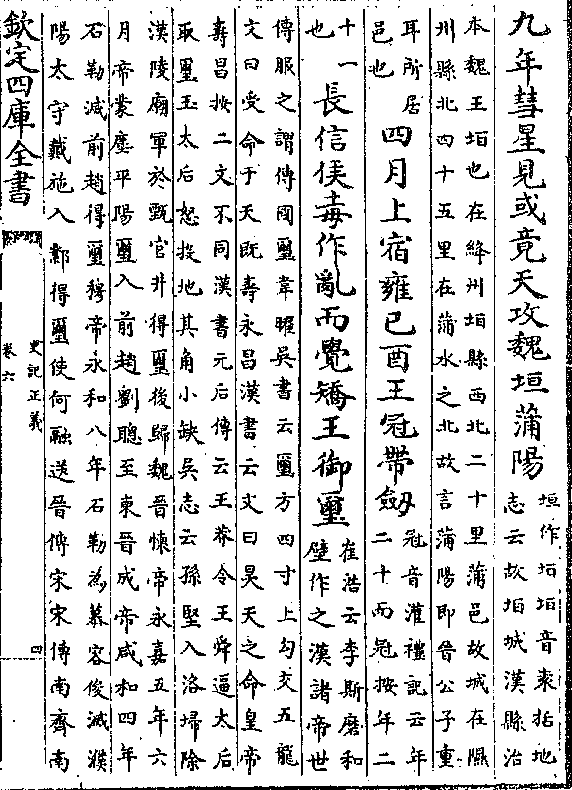 九年彗星見或竟天攻魏垣蒲陽
垣作垣垣音袁括地
志云故垣城漢縣治
本魏王垣也在絳州垣縣西北二十里蒲邑故城在隰
州縣北四十五里在蒲水之北故言蒲陽即晉公子重
耳所居
邑也
四月上宿雍己酉王冠帶劔
冠音灌禮記云年
二十而冠按年二
十一
也
長信侯毐作亂而覺矯王御璽
崔浩云李斯磨和
璧作之漢諸帝世
傳服之謂傳國璽韋曜吳書云璽方四寸上勾交五龍
文曰受命于天既壽永昌漢書云文曰昊天之命皇帝
壽昌按二文不同漢書元后傳云王莽令王舜逼太后
取璽王太后怒投地其角小缺吳志云孫堅入洛埽除
漢陵廟軍於甄官井得璽後歸魏晉懷帝永嘉五年六
月帝蒙塵平陽璽入前趙劉聰至東晉成帝咸和四年
石勒滅前趙得璽穆帝永和八年石勒為慕容俊滅濮
陽太守戴施入鄴得璽使何融送晉傳宋宋傳南齊南
欽定四庫全書
史記正義
卷六
四